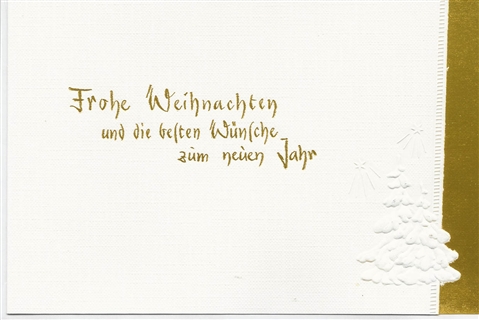 Frohe Weihnachten
und die beſten Wünſche
zum neuen Jahr